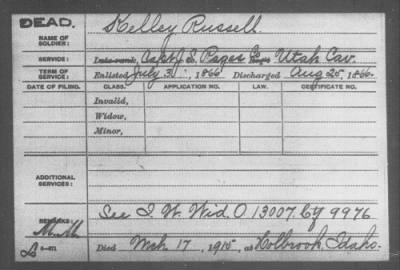 DEAD.
Kelley Russell.
NAME OF SOLDIER:
SERVICE: Late rank, Capt J. S. Pages Co., Utah Cav.
TERM OF SERVICE: Enlisted July 3, 1866 Discharged Aug 25, 1866.
DATE OF FILING. CLASS. APPLICATION NO. LAW. CERTIFICATE NO.
Invalid,
Widow,
Minor,
ADDITIONAL SERVICES:
See I. W. Wid O 13007. Ctf 9976
REMARKS:
Died Mch 17, 1915, at Holbrook, Idaho.